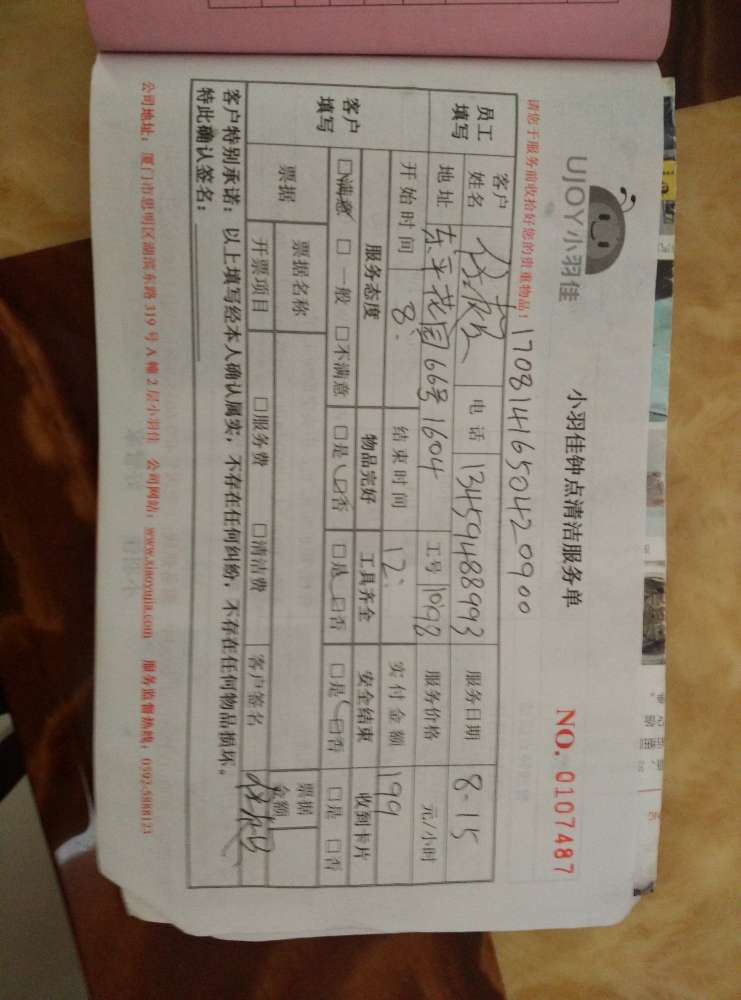 UJOY小羽佳
小羽佳钟点清洁服务单
NO. 0107487
请您于服务前收拾好您的贵重物品！
170814650420900
员工填写 客户姓名 电话 13459488993 服务日期 8.15
地址 东平花园66号1604 工号 1098 服务价格 元/小时
开始时间 8: 结束时间 12: 实付金额 199
客户填写 服务态度 物品完好 工具齐全 安全结束 收到卡片
□满意 □一般 □不满意 □是 □否 □是 □否 □是 □否 □是 □否
票据 票据名称 票据金额
开票项目 □服务费 □清洁费 客户签名
客户特别承诺：以上填写经本人确认属实，不存在任何纠纷，不存在任何物品损坏。
特此确认签名：
公司地址：厦门市思明区湖滨东路319号A幢2层小羽佳 公司网站：www.xiaoyujia.com 服务监督热线：0592-5888123